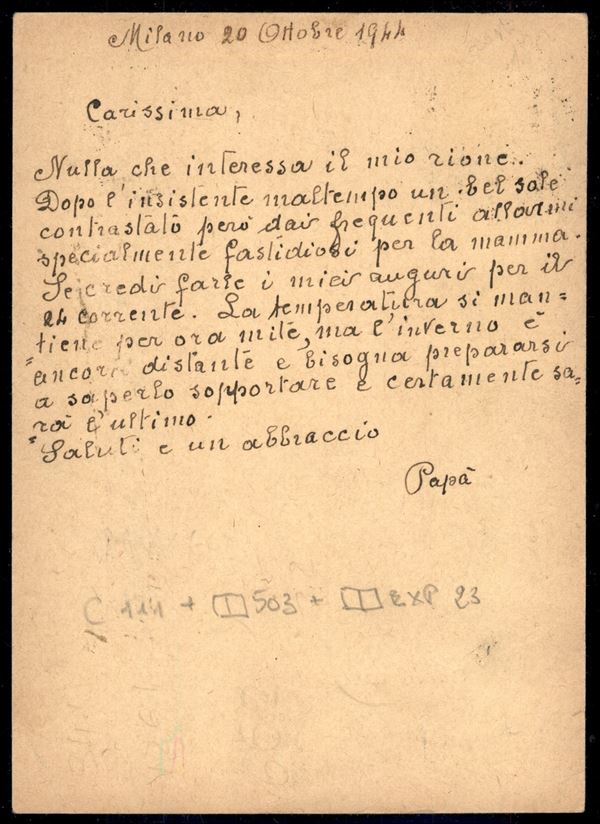 Milano 20 Ottobre 1944
Carissima,
Nulla che interessa il mio rione.
Dopo l'insistente maltempo un bel sole
contrastato però dai frequenti allarmi
specialmente fastidiosi per la mamma.
Se credi farle i miei auguri per il
24 corrente. La temperatura si man=
tiene per ora mite, ma l'inverno è
ancora distante e bisogna prepararsi
a saperlo sopportare e certamente sa=
=rà l'ultimo.
Saluti e un abbraccio
Papà
C 111 + 503 + EXP 23